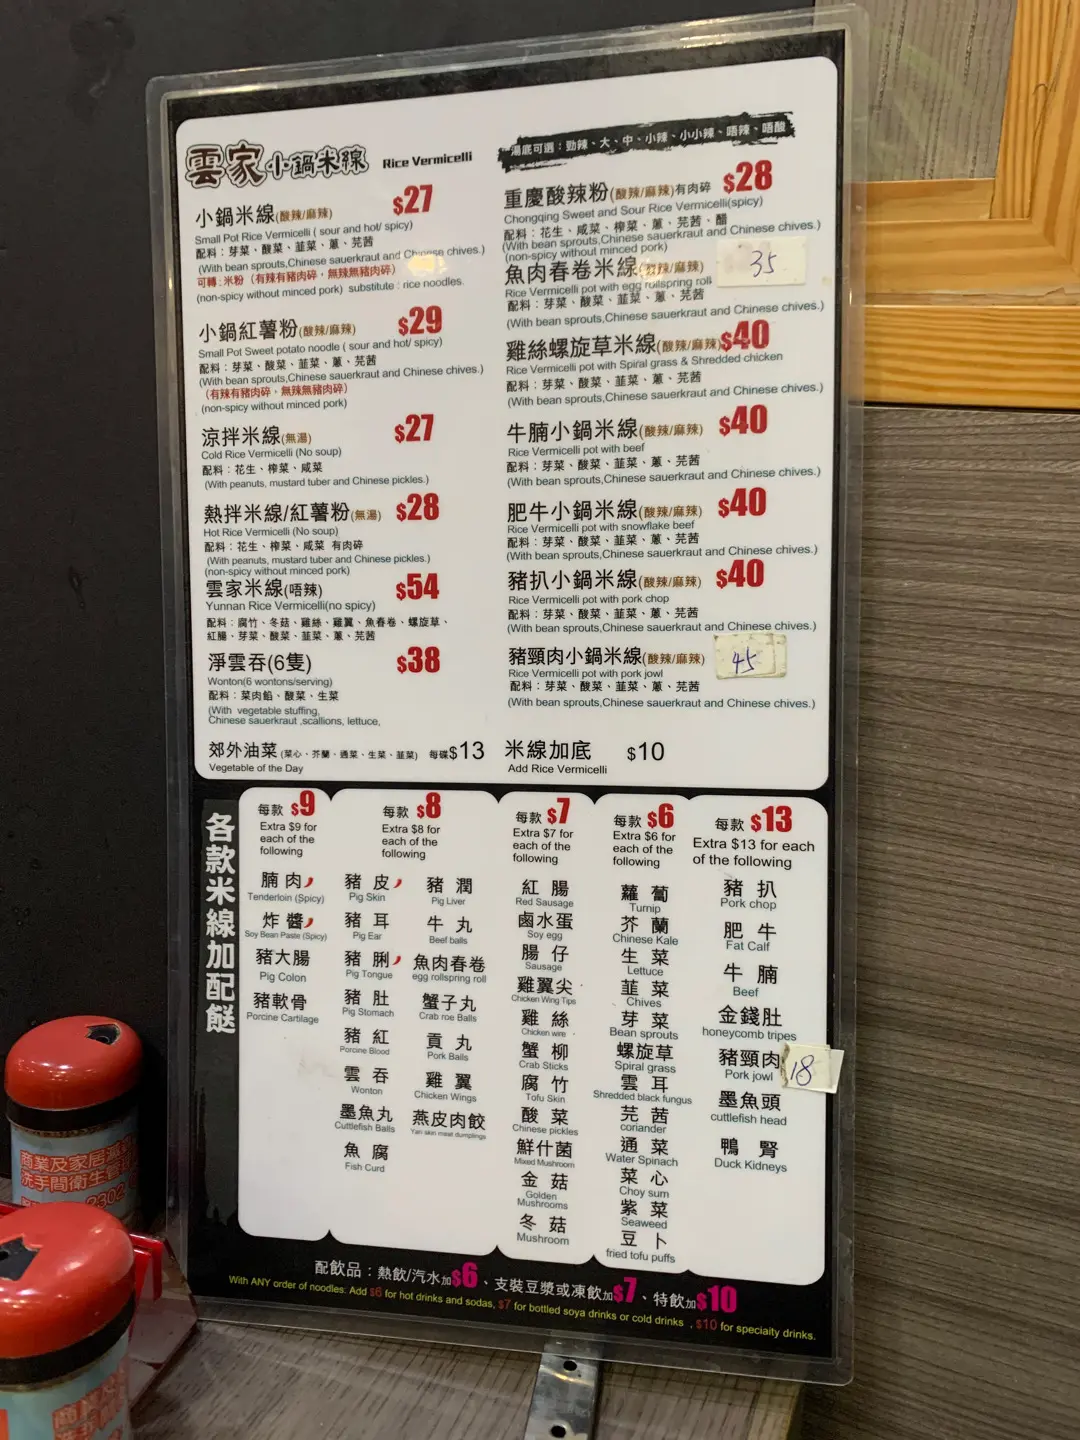 雲家小鍋米線 Rice Vermicelli
小鍋米線(酸辣/麻辣) $27
Small Pot Rice Vermicelli ( sour and hot/ spicy)
配料：芽菜、酸菜、韮菜、蔥、芫茜
(With bean sprouts,Chinese sauerkraut and Chinese chives.)
可轉：米粉（有辣有豬肉碎，無辣無豬肉碎）
(non-spicy without minced pork) substitute : rice noodles.
小鍋紅薯粉(酸辣/麻辣) $29
Small Pot Sweet potato noodle ( sour and hot/ spicy)
配料：芽菜、酸菜、韮菜、蔥、芫茜
(With bean sprouts,Chinese sauerkraut and Chinese chives.)
（有辣有豬肉碎，無辣無豬肉碎）
(non-spicy without minced pork)
涼拌米線(無湯) $27
Cold Rice Vermicelli (No soup)
配料：花生、榨菜、咸菜
(With peanuts, mustard tuber and Chinese pickles.)
熱拌米線/紅薯粉(無湯) $28
Hot Rice Vermicelli (No soup)
配料：花生、榨菜、咸菜 有肉碎
(With peanuts, mustard tuber and Chinese pickles.)
(non-spicy without minced pork)
雲家米線(唔辣) $54
Yunnan Rice Vermicelli(no spicy)
配料：腐竹、冬菇、雞絲、雞翼、魚春卷、螺旋草、
紅腸、芽菜、酸菜、韮菜、蔥、芫茜
淨雲吞(6隻) $38
Wonton(6 wontons/serving)
配料：菜肉餡、酸菜、生菜
(With vegetable stuffing,
Chinese sauerkraut ,scallions, lettuce,
郊外油菜(菜心、芥蘭、通菜、生菜、韮菜) 每碟$13
Vegetable of the Day
湯底可選：勁辣、大、中、小辣、小小辣、唔辣、唔酸
重慶酸辣粉(酸辣/麻辣)有肉碎 $28
Chongqing Sweet and Sour Rice Vermicelli(spicy)
配料：花生、咸菜、榨菜、蔥、芫茜、醋
(With bean sprouts,Chinese sauerkraut and Chinese chives.)
(non-spicy without minced pork)
魚肉春卷米線(酸辣/麻辣) 35
Rice Vermicelli pot with egg rollspring roll
配料：芽菜、酸菜、韮菜、蔥、芫茜
(With bean sprouts,Chinese sauerkraut and Chinese chives.)
雞絲螺旋草米線(酸辣/麻辣) $40
Rice Vermicelli pot with Spiral grass & Shredded chicken
配料：芽菜、酸菜、韮菜、蔥、芫茜
(With bean sprouts,Chinese sauerkraut and Chinese chives.)
牛腩小鍋米線(酸辣/麻辣) $40
Rice Vermicelli pot with beef
配料：芽菜、酸菜、韮菜、蔥、芫茜
(With bean sprouts,Chinese sauerkraut and Chinese chives.)
肥牛小鍋米線(酸辣/麻辣) $40
Rice Vermicelli pot with snowflake beef
配料：芽菜、酸菜、韮菜、蔥、芫茜
(With bean sprouts,Chinese sauerkraut and Chinese chives.)
豬扒小鍋米線(酸辣/麻辣) $40
Rice Vermicelli pot with pork chop
配料：芽菜、酸菜、韮菜、蔥、芫茜
(With bean sprouts,Chinese sauerkraut and Chinese chives.)
豬頸肉小鍋米線(酸辣/麻辣) 45
Rice Vermicelli pot with pork jowl
配料：芽菜、酸菜、韮菜、蔥、芫茜
(With bean sprouts,Chinese sauerkraut and Chinese chives.)
米線加底 $10
Add Rice Vermicelli
各款米線加配餸
每款 $9
Extra $9 for
each of the
following
腩肉
Tenderloin (Spicy)
炸醬
Soy Bean Paste (Spicy)
豬大腸
Pig Colon
豬軟骨
Porcine Cartilage
每款 $8
Extra $8 for
each of the
following
豬皮
Pig Skin
豬耳
Pig Ear
豬脷
Pig Tongue
豬肚
Pig Stomach
豬紅
Porcine Blood
雲吞
Wonton
墨魚丸
Cuttlefish Balls
魚腐
Fish Curd
豬潤
Pig Liver
牛丸
Beef balls
魚肉春卷
egg rollspring roll
蟹子丸
Crab roe Balls
貢丸
Pork Balls
雞翼
Chicken Wings
燕皮肉餃
Yan skin meat dumplings
每款 $7
Extra $7 for
each of the
following
紅腸
Red Sausage
鹵水蛋
Soy egg
腸仔
Sausage
雞翼尖
Chicken Wing Tips
雞絲
Chicken wire
蟹柳
Crab Sticks
腐竹
Tofu Skin
酸菜
Chinese pickles
鮮什菌
Mixed Mushroom
金菇
Golden
Mushrooms
冬菇
Mushroom
每款 $6
Extra $6 for
each of the
following
蘿蔔
Turnip
芥蘭
Chinese Kale
生菜
Lettuce
韮菜
Chives
芽菜
Bean sprouts
螺旋草
Spiral grass
雲耳
Shredded black fungus
芫茜
coriander
通菜
Water Spinach
菜心
Choy sum
紫菜
Seaweed
豆卜
fried tofu puffs
每款 $13
Extra $13 for each
of the following
豬扒
Pork chop
肥牛
Fat Calf
牛腩
Beef
金錢肚
honeycomb tripes
豬頸肉 18
Pork jowl
墨魚頭
cuttlefish head
鴨腎
Duck Kidneys
配飲品：熱飲/汽水加$6、支裝豆漿或凍飲加$7、特飲加$10
With ANY order of noodles: Add $6 for hot drinks and sodas, $7 for bottled soya drinks or cold drinks , $10 for specialty drinks.